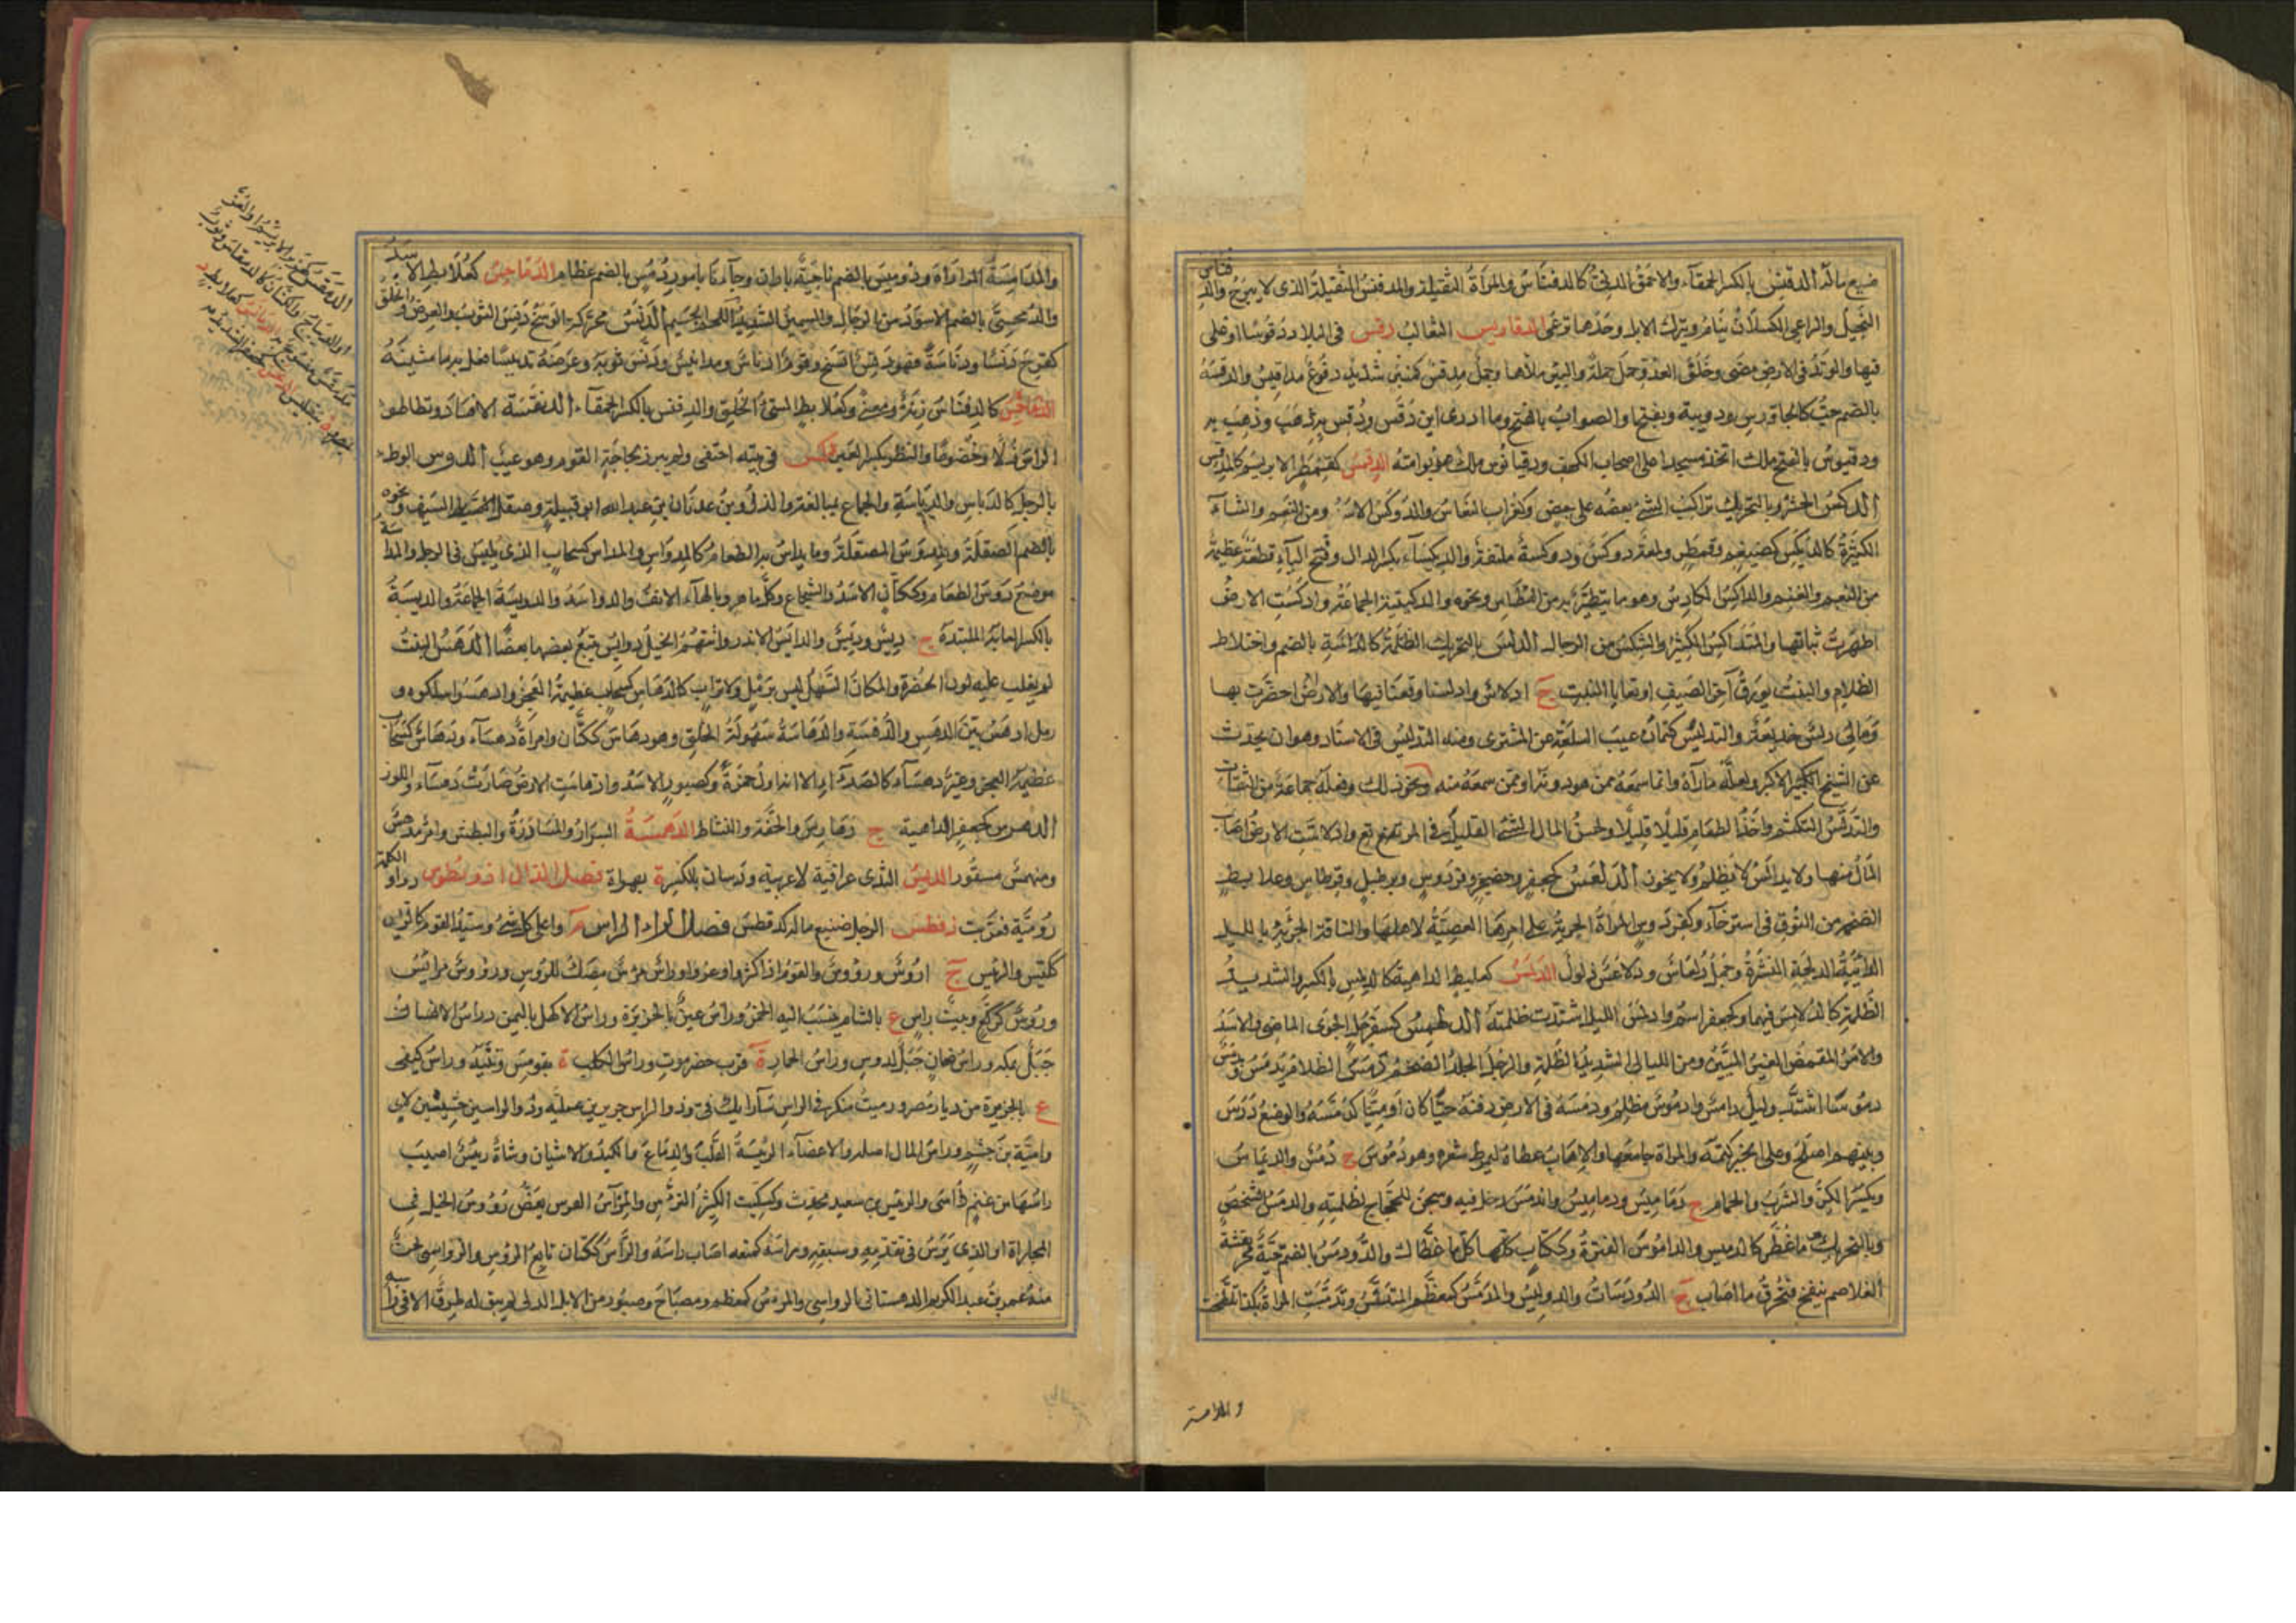 ضيع ماله الدفنس بالكسر الحمقاء والاحمق الدني كالدفناس والمراة الثقيلة والمدفنس الثقيل الذي لا يبرح والد
فناس
البخيل والراعي الكسلان ينام ويترك الابل وحدها ترعى الدقاريس الثعالب دقس في البلاد دقوسا اوغل
فيها والوتد في الارض مضى وخلف العدو حمل حملة والبئر ملأها وجمل مدقس كمنبر شديد دفوع مداقيس والدقسة
بالضم حب كالجاورس ودويبة وبفتحها والصواب بالفتح وما ادري اين دقس ودقس به ذهب وذهب به
ودقيوس بالفتح ملك اتخذ مسجدا على اصحاب الكهف ودقيانوس ملك هربوا منه الدقمس كقمطر الابريسم كالمدقس
الدكس الحثو وبالتحريك تراكب الشيء بعضه على بعض وكغراب النعاس والدوكس الاسد ومن النعم والشاء
الكثيرة كالديكس كضيغم وقمطر ولمعة دوكس ودوكسة ملتفة والديكساء بكسر الدال وفتح الياء قطعة عظيمة
من النعم والغنم والداكس الكادس وهو ما يتطير به من العطاس ونحوه والدكيسة الجماعة وادكست الارض
اظهرت نباتها والمتداكس الكثير والشكس من الرجال الدلس بالتحريك الظلمة كالدلسة بالضم واختلاط
الظلام والنبت يورق آخر الصيف او بقايا النبت ج ادلاس وادلسنا وقعنا فيها والارض اخضرت بها
ومالي دلس خديعة والتدليس كتمان عيب السلعة عن المشتري ومنه التدليس في الاسناد وهو ان يحدث
عن الشيخ الكبير الاكبر ولعله ما رآه وانما سمعه ممن هو دونه او ممن سمعه منه ونحو ذلك وفعله جماعة من الثقات
والتدلس التكتم واخذ الطعام قليلا قليلا ولحس المال الشيء القليل في المرتع وادلاست الارض اصاب
المال منها ولا يدالس لا يظلم ولا يخون الدلعس كجعفر وحضجر وفردوس وبرطيل وقرطاس وعلابط
الضخم من النوق في استرخاء وكفردوس المراة الجرية على امرها العصية لاهلها والناقة الجريئة بالليل
الدائبة الدلجة النشزة وجمل دلعاس ودلاعس ذلول الدلمس كعلبط الداهية كالدلمس بالكسر والشديد
الظلمة كالدلامس فيهما وكجعفر اسم وادلمس الليل اشتدت ظلمته الدلهمس كسفرجل الجري الماضي والاسد
والامر المغمض الغير المبين ومن الليالي الشديد الظلمة والرجل الجلد الضخم دمس الظلام يدمس ويدمس
دموسا اشتد وليل دامس وادموس مظلم ودمسه في الارض دفنه حيا كان او ميتا كدمسه والموضع درس
وبينهم اصلح وعلى الخبر كتمه والمراة جامعها والاهاب غطاه ليمرط شعره وهو دموس ج دمس والديماس
ويكسر الكن والسرب والحمام ج دماميس ودياميس واندمس دخل فيه وسجن للحجاج لظلمته والدمس الشخص
وبالتحريك ما غطي كالدميس والداموس القترة وككتاب كلها كل ما غطاك والدودمس بالضم حية محرنفشة
الغلاصم ينفخ فتحرق ما اصاب ج الدودمسات والدواميس والمدمس كمعظم المتدنس وتدمست المراة بكذا تلطخت
والمدامسة
والمدامسة المواراة ودوميس بالضم ناحية باران وجاءنا بامور دمس بالضم عظام الدماحس كعلابط الاسد
والدمحسي بالضم الاسود من الرجال والسمين الشديد اللحم الجسيم الدنس محركة الوسخ دنس الثوب والعرض والخلق
كفرح دنسا ودناسة فهو دنس اتسخ وقوم ادناس ومدانيس ودنس ثوبه وعرضه تدنيسا فعل به ما يشينه
الدنافس كالدفناس زنة ومعنى وكعلابط السيئ الخلق والدنفس بالكسر الحمقاء الدنقسة الافساد وتطاطؤ
الراس ذلا وخضوعا والنظر بكسر العين دنكس في بيته اختفى ولم يبرز لحاجة القوم وهو عيب الدوس الوطء
بالرجل كالدياس والدياسة والجماع بمبالغة والذل وبن عدنان بن عبد الله ابو قبيلة وصقل السيف ونحوه
بالضم الصقلة والمدوس المصقلة وما يداس به الطعام كالمدواس والمداس كسحاب الذي يلبس في الرجل والمداسة
موضع دوس الطعام وككتان الاسد والشجاع وكل ماهر وبالهاء الانف والدواسة والدويسة الجماعة والديسة
بالكسر الغابة المتلبدة ج ديس وديس والدائس الاندر واتتهم الخيل دوائس يتبع بعضها بعضا الدهس النبت
لم يغلب عليه لون الخضرة والمكان السهل ليس برمل ولا تراب كالدهاس كسحاب عظيمة العجز وادهسوا سلكوه و
رمل ادهس بين الدهس والدهسة والدهاسة سهولة الخلق وهو دهاس ككتان وامراة دهساء ودهاس كسحاب
عظيمة العجز وعنز دهساء كالصداء الا انها اقل حمرة وكصبور الاسد وادهاست الارض صارت دهساء اللون
الدهرس كجعفر الداهية ج دهاريس والخفة والنشاط الدهمسة السرار والمساورة والبطش وامر مدهمس
ومنهمس مستور الديس الثدي عراقية لا عربية وديسان بالكسر ة بهراة فصل الذال اذريطوس دواء والكلمة
رومية فعربت ذفطس الرجل ضيع ماله كدفطس فصل الراء الراس م واعلى كل شيء وسيد القوم كالرئيس
ككيس والريس ج ارؤس ورؤوس والقوم اذا كثروا وعزوا وراس مرأس مصك للرؤس ورؤوس مرائيس
ورؤس كركع وبيت راس ع بالشام ينسب اليه الخمر وراس عين بالجزيرة وراس الاكحل باليمن وراس الانسان
جبل بمكة وراس ضان جبل لدوس وراس الحمار ة قرب حضرموت وراس الكلب ة بقومس وثنية وراس كيفى
ع بالجزيرة من ديار مضر ورميت منك في الراس ساء رايك في وذو الراس جرير بن عطية وذو الراسين خشين بن لاي
وامية بن جشم وراس المال اصله والاعضاء الرئيسة القلب والدماغ والكبد والانثيان وشاة رئيس اصيب
راسها من غنم رآسى والرئيس بن سعيد محدث وكسكيت الكثير الترؤس والمرآس الفرس يعض رؤوس الخيل في
المجاراة او الذي يرأس في تقدمه وسبقه وراسه كمنعه اصاب راسه والرآس ككتان بائع الرؤس والرواسي لحن
منه عمر بن عبد الكريم الدهستاني الرواسي والمرؤس كمعظم ومصباح وصبور من الابل الذي لم يبق له طرق الا في راسه